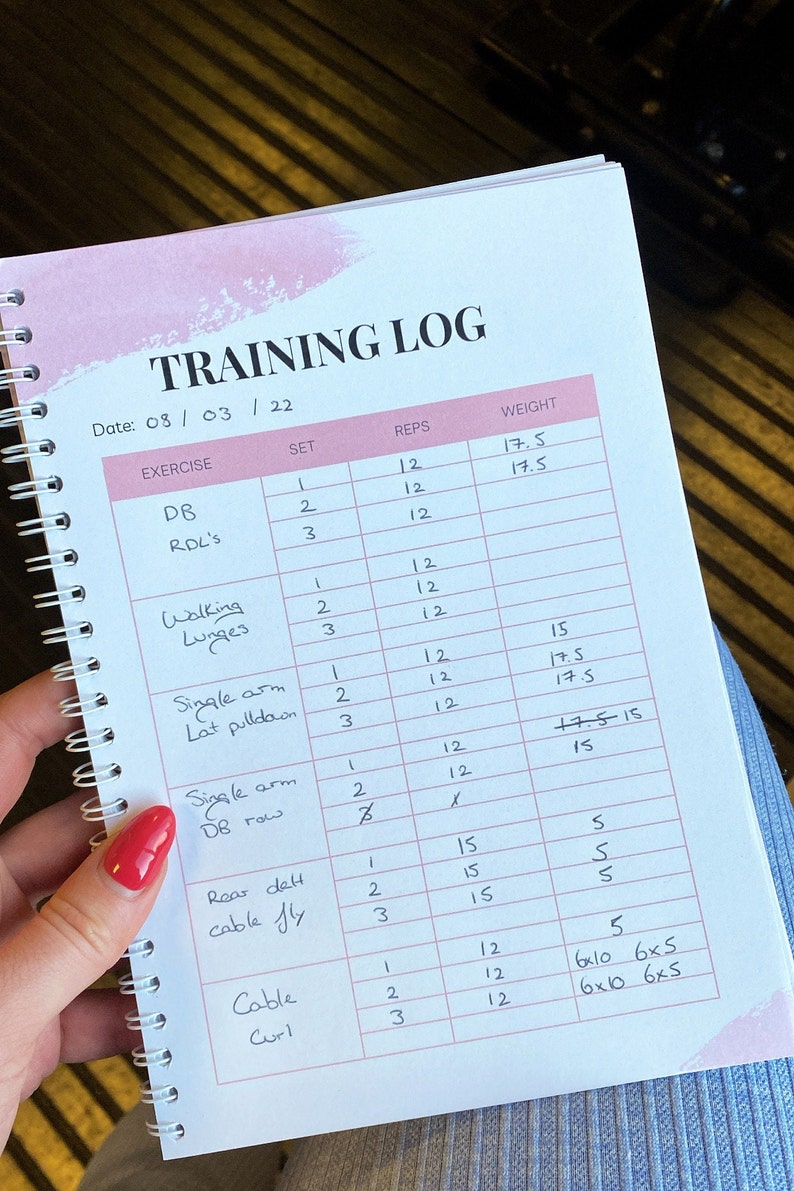 TRAINING LOG
Date: 08 / 03 / 22
EXERCISE SET REPS WEIGHT
DB RDL's
1 12 17.5
2 12 17.5
3 12
Walking Lunges
1 12
2 12
3 12
Single arm Lat pulldown
1 12 15
2 12 17.5
3 12 17.5
Single arm DB row
1 12 17.5 15
2 12 15
3 x
Rear delt cable fly
1 15 5
2 15 5
3 15 5
Cable Curl
1 12 5
2 12 6x10 6x5
3 12 6x10 6x5